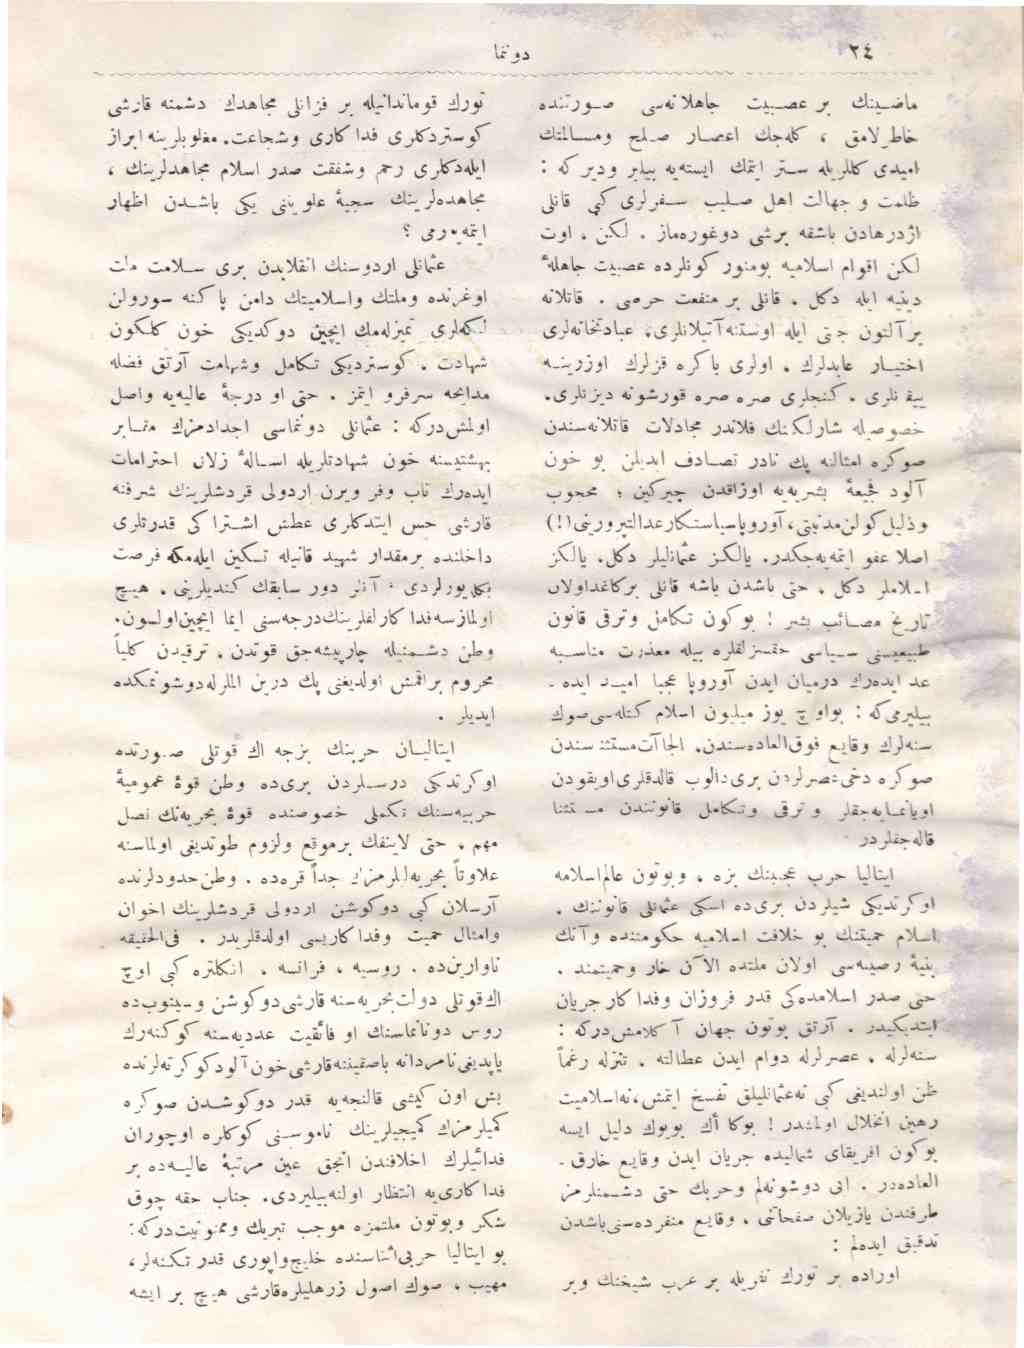 ٢٤
دونما
ماضینك بر عصبیت جاهلانه‌سی صورتنده
خاطرلامق ، كله‌جك اعصار صلح ومسالمتك
امیدی كللریله ستر ایتمك ایسته‌یه بیلیر ودیر كه :
ظلمت و جهالت اهل صلیب سفرلری كبی قانلی
اژدرهادن باشقه برشی دوغوره‌ماز . لكن ، اوت
لكن اقوام اسلامیه بومنور كونلرده عصبیت جاهلهٔ
دینیه ایله دكل ، قانلی بر منفعت حرصی ، قاتلانه
برآلتون حبی ایله اوستنه‌آتیلانلری، عبادتخانه‌لری
اختیار عابدلرك ، اولری باكره قزلرك اوزرینه
ییقانلری ، كنجلری صره صره قورشونه دیزنلری،
خصوصیله شارلكنك فلاندر مجادلات قاتلانه‌سندن
صوكره امثالنه پك نادر تصادف ایدیلن بو خون
آلود فجیعهٔ بشریه‌یه اوزاقدن چیركین ؛ محجوب
وذلیل كولن‌مدنیتی، آوروپاسیاستكارعدالتپرورینی(!)
اصلا عفو ایتمه‌یه‌جكدر. یالكز عثمانلیلر دكل، یالكز
اسلاملر دكل ، حتی باشدن باشه قانلی بركاغداولان
تاریخ مصائب بشر ! بوكون تكامل وترقی قانون
طبیعیسنی سیاسی حقسزلقلره بیله معذرت مناسبه
عد ایده‌رك درمیان ایدن آوروپا عجبا امید ایده ـ
بیلیرمی‌كه : بواوچ یوز میلیون اسلام كتله‌سی صوك
سنه‌لرك وقایع فوق‌العاده‌سندن، الجاآت‌مستثناسندن
صوكره دخی‌عصرلردن بری‌دالوب قالدقلری‌اویقودن
اویانمایه‌جقلر و ترقی وتكامل قانونندن مستثنا
قاله‌جقلردر
ایتالیا حرب عجیبنك بزه ، وبوتون عالم‌اسلامه
اوكرتدیكی شیلردن بری‌ده اسكی عثمانلی قانوننك ،
اسلام حمیتنك بو خلافت اسلامیه حكومتنده وآنك
بنیهٔ رصینه‌سی اولان ملتده الآن حار وحمیتمند ،
حتی صدر اسلامده‌كی قدر فروزان وفداكار جریان
ایتدیكیدر . آرتق بوتون جهان آكلامش‌دركه :
سنه‌لرله ، عصرلرله دوام ایدن عطالته ، تنزله رغماً
ظن اولندیغی كبی نه‌عثمانلیلق تفسخ ایتمش،نه‌اسلامیت
رهین انحلال اولمشدر ! بوكا اك بویوك دلیل ایسه
بوكون افریقای شمالیده جریان ایدن وقایع خارق ـ
العاده‌در . ایی دوشونه‌لم وحربك حتی دشمنلرمز
طرفندن یازیلان صفحاتنی ، وقایع منفرده‌سنی‌باشدن
تدقیق ایده‌لم :
اوراده بر تورك نفریله بر عرب شیخنك وبر
تورك قوماندانیله بر فزانلی مجاهدك دشمنه قارشی
كوستردكلری فداكاری وشجاعت، مغلوبلرینه ابراز
ایله‌دكلری رحم وشفقت صدر اسلام مجاهدلرینك ،
مجاهده‌لرینك سجیهٔ علویتنی یكی باشدن اظهار
ایتمه‌یورمی ؟
عثمانلی اردوسنك انقلابدن بری سلامت ملت
اوغرنده وملتك واسلامیتك دامن پاكنه سورولن
لكه‌لری تمیزله‌مك ایچین دوكدیكی خون كلكون
شهادت ، كوستردیكی تكامل وشهامت آرتق فضله
مدایحه سرفرو ایتمز . حتی او درجهٔ عالیه‌یه واصل
اولمش‌دركه : عثمانلی دونماسی اجدادمزك مقابر
بهشتیسنه خون شهادتلریله اسالهٔ زلال احترامات
ایده‌رك تاب وفر ویرن اردولی قردشلرینك شرفنه
قارشی حس ایتدكلری عطش اشتراكی قدرتلری
داخلنده برمقدار شهید قانیله تسكین ایله‌مكه فرصت
بكله‌یورلردی . آنلر دور سابقك كندیلرینی ، هیچ
اولمازسه‌فداكارلقلرینك‌درجه‌سنی ایما ایچین‌اولسون،
وطن دشمنیله چارپیشه‌جق قوتدن ، ترقیدن كلیاً
محروم براقمش اولدیغنی پك درین الملرله‌دوشونمكده
ایدیلر .
ایتالیان حربنك بزجه اك قوتلی صورتده
اوكرتدیكی درسلردن بری‌ده وطن قوهٔ عمومیهٔ
حربیه‌سنك تكملی خصوصنده قوهٔ بحریه‌نك نصل
مهم ، حتی لاینفك برموقع ولزوم طوتدیغی اولماسنه
علاوتاً بحریه‌لیلرمزك جداً قره‌ده ، وطن‌حدودلرنده
آرسلان كبی دوكوشن اردولی قردشلرینك اخوان
وامثال حمیت وفداكاریسی اولدقلریدر . فی‌الحقیقه
ناوارین‌ده . روسیه ، فرانسه ، انكلتره كبی اوچ
اك‌قوتلی دولت‌بحریه‌سنه قارشی‌دوكوشن وسینوب‌ده
روس دونانماسنك او فائقیت عددیه‌سنه كوكنه‌رك
یاپدیغی‌نامردانه باصقیننه‌قارشی‌خون‌آلودكوكرته‌لرنده
بش اون كیشی قالنجه‌یه قدر دوكوشدن صوكره
كمیلرمزك كمیجیلرینك ناموسنی كوكلره اوچوران
فدائیلرك اخلافندن آنجق عین مرتبهٔ عالیه‌ده بر
فداكاری‌یه انتظار اولنه‌بیلیردی. جناب حقه چوق
شكر وبوتون ملتمزه موجب تبریك وممنونیت‌دركه:
بو ایتالیا حربی‌اثناسنده خلیج‌واپوری قدر تكنه‌لر،
مهیب ، صوك اصول زرهلیلره‌قارشی هیچ بر ایشه